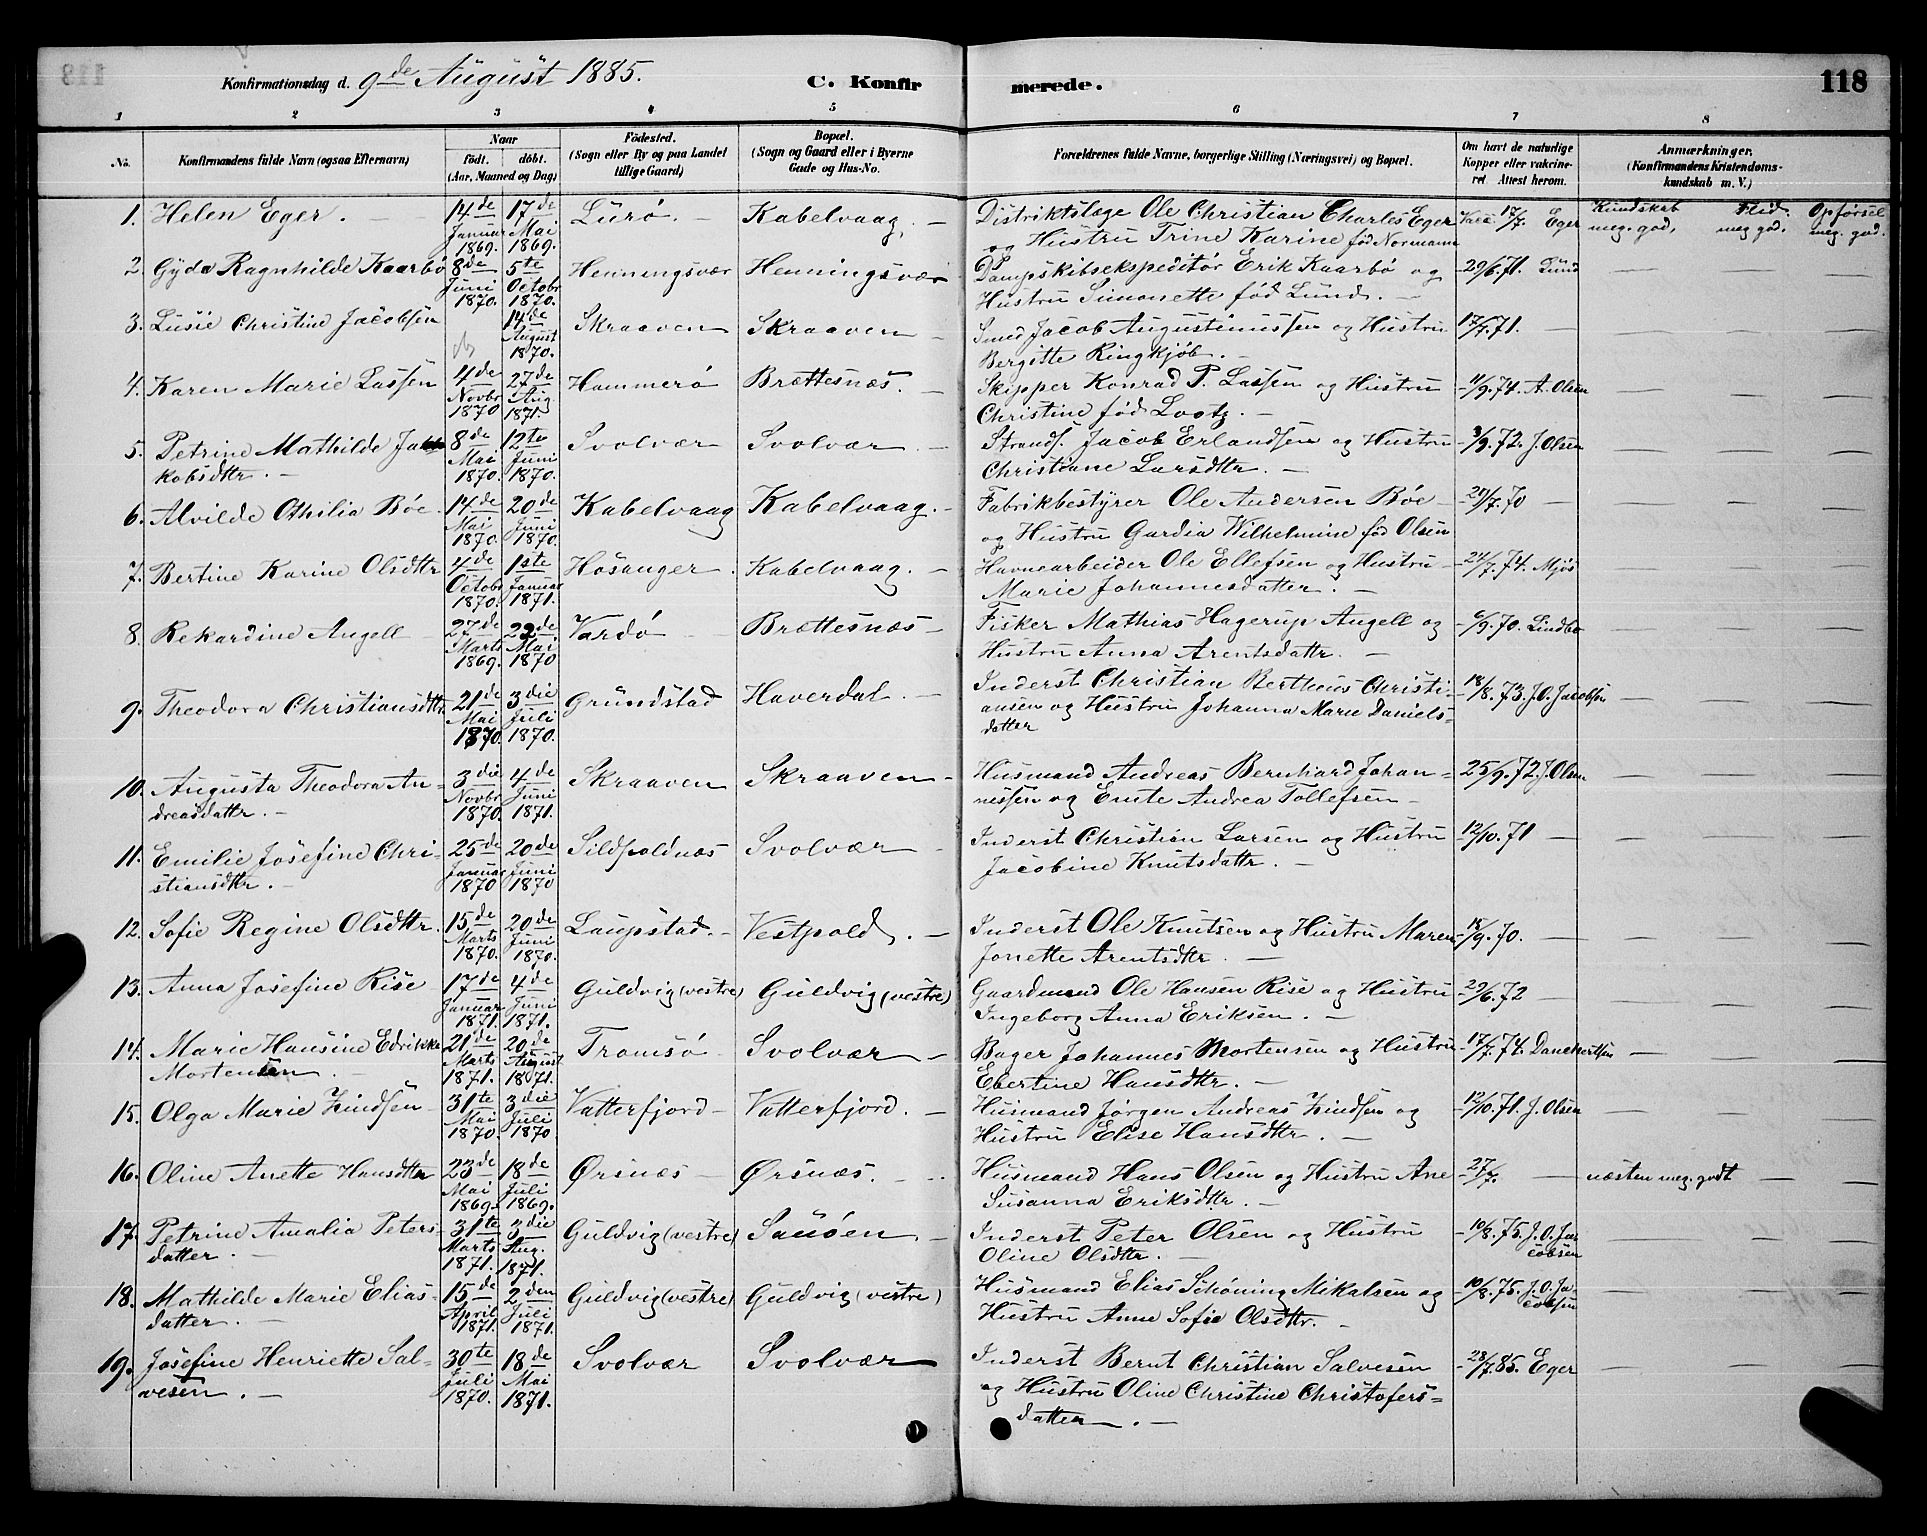 Konfirmationsdag d. 9de August 1885. C. Konfirmerede. 118
1 2 3 4 5 6 7 8
No. Konfirmandens fulde Navn (ogsaa Efternavn) Naar födt. döbt. (Aar, Maaned og Dag) Födested. (Sogn eller By og paa Landet tillige Gaard) Bopæl. (Sogn og Gaard eller i Byerne Gade og Hus-No. Forældrenes fulde Navne, borgerlige Stilling (Næringsvei) og Bopæl. Om havt de naturlige Kopper eller vakcineret. Attest herom. Anmærkninger. (Konfirmandens Kristendomskundskab m. V.)
1. Helen Eger. 14de Januar 1869. 17de Mai 1869. Lurø. Kabelvaag. Distriktslæge Ole Christian Charles Eger Vacc. 17/7. Eger Kundskab meg. god, Flid. meg god. Opførsel meg. god.
og Hustru Trine Karine fød Normann
2. Gyda Ragnhilde Kaarbø 8de Juni 1870. 5te Octobr 1870. Henningsvær Henningsvær Dampskibsekspeditör Erik Kaarbø og 29/6.71. Lund
Hustru Simonette fød Lund.
3. Lusie Christine Jacobsen 14de August 1870. Skraaven Skraaven Smed Jacob Augustinussen og Hustru 17/7.71.
Bergitte Ringkjöb.
4. Karen Marie Lassen 4de Novbr 1870 27de Aug 1871. Hammerø Brættesnæs. Skipper Konrad P. Lassen og Hustru 11/9.74. A. Olsen
Christine fød Lootz.
5. Petrine Mathilde Ja- 8de Mai 1870. 12te Juni 1870. Svolvær Svolvær Strands. Jacob Erlandsen og Hustru 3/9.72. J. Olsen
kobsdttr. Christiane Larsdttr.
6. Alvilde Othilia Bøe 14de Mai 1870. 20de Juni 1870. Kabelvaag Kabelvaag. Fabrikbestyrer Ole Andersen Bøe 20/7.70
og Hustru Gardia Wilhelmine fød Olsen
7. Bertine Karine Olsdttr 4de Octobr 1870. 1ste Januar 1871. Hosanger. Kabelvaag. Havnearbeider Ole Ellefsen og Hustru 24/7.74. Mjøs
Marie Johannesdatter.
8. Rekardine Angell 27de Marts 1869. 22de Mai 1870 Vardø Brættesnæs Fisker Mathias Hagerup Angell og 6/9.70. Lindbo
Hustru Anna Arentsdattr.
9. Theodora Christiansdttr 21de Mai 1870. 3die Juli 1870. Grundstad Haverdal. Inderst Christian Bertheus Christi- 18/8.73. J.O. Jacobsen
ansen og Hustru Johanna Marie Daniels-
datter
10. Augusta Theodora An- 3die Novbr 1870. 4de Juni 1871. Skraaven Skraaven Husmand Andreas Bernhard Johan- 25/9.72. J. Olsen
dreasdattr. nissen og Emte Andrea Tollefsen
11. Emilie Josefine Chri- 25de Januar 1870 20de Juni 1870 Sildpoldnæs Svolvær Inderst Christian Larsen og Hustru 12/10.71
stiansdttr. Jacobine Knutsdattr.
12. Sofie Regine Olsdttr. 15de Marts 1870. 20de Juni 1870. Laupstad. Vestpold. Inderst Ole Knutsen og Hustru Maren 18/9.70.
Jonette Arentsdttr.
13. Anna Josefine Rise 17de Januar 1871. 4de Juni 1871. Guldvig (vestre) Guldvig (vestre) Gaardmand Ole Hansen Rise og Hustru 29/6.72
Ingeborg Anna Eriksen.
14. Marie Hansine Edrikke 21de Marts 1871. 20de August 1871. Tromsø Svolvær Bager Johannes Mortensen og Hustru 17/7.74. Danchertsen
Mortensen Ebertine Hansdttr.
15. Olga Marie Zindsen 31te Mai 1870. 3die Juli 1870. Vatterfjord Vatterfjord. Husmand Jørgen Andreas Zindsen og 12/10.71. J. Olsen
Hustru Elise Hansdttr.
16. Oline Anette Hansdttr 23de Mai 1869. 18de Juli 1869. Ørsnæs Ørsnæs. Husmand Hans Olsen og Hustru Ane 27/7. næsten meg. godt
Susanna Eriksdttr.
17. Petrine Amalia Peters- 31te Marts 1871. 3die Aug. 1871. Guldvig (vestre) Sauøen Inderst Peter Olsen og Hustru 10/8.75. J.O. Ja-
datter. Oline Olsdttr. cobsen
18. Mathilde Marie Elias- 15de April 1871. 2den Juli 1871. Guldvig (vestre) Guldvig (vestre) Husmand Elias Schøning Mikalsen og 10/8.75. J.O. Ja-
datter. Hustru Anne Sofie Olsdttr. cobsen
19. Josefine Henriette Sal- 30te Juli 1870. 18de Mai 1871. Svolvær Svolvær Inderst Bernt Christian Salvesen 28/7.85. Eger
vesen. og Hustru Oline Christine Christofers-
datter.